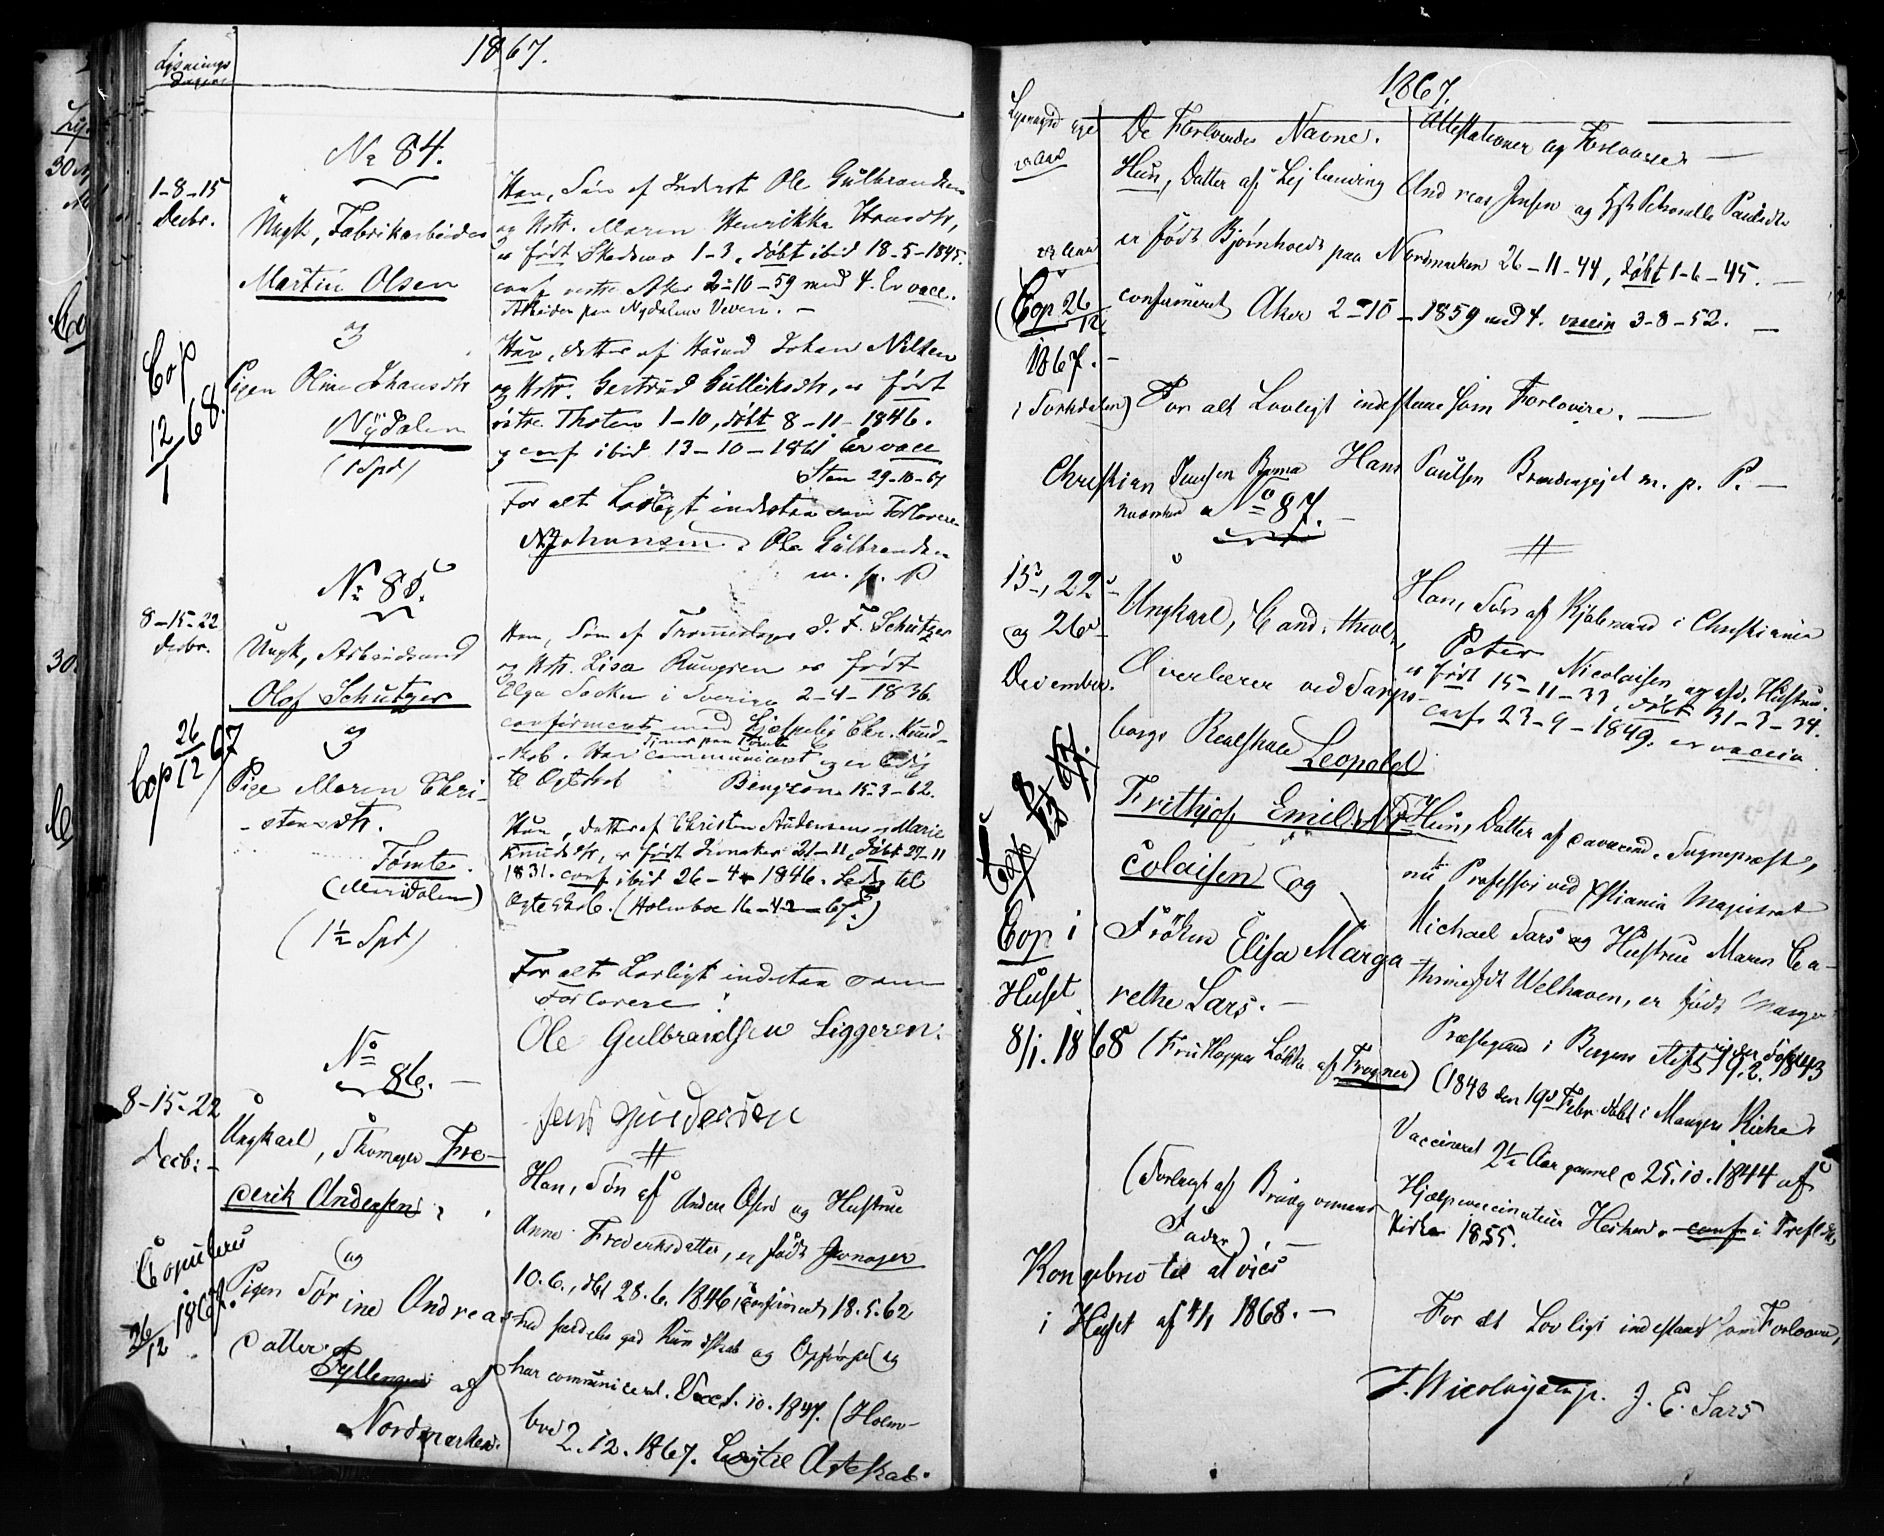 Lysnings
Dagene
1867.
No 84.
1-8-15
Decbr.
Ungk, Fabrikarbeider
Martin Olsen
og
Pigen Oline Johansdtr
Nydalen
(1 Spd)
Cop
12/1 68.
Han, Søn af Inderst Ole Gulbrandsen
og Hstr. Maren Henrikka Hansdtr,
er født Skedsmo 1-3, døbt ibid 18-5-1845.
conf vestre Aker 2-10-59 med 4. Er vacc.
Arbeider paa Nydalens Veveri. -
Hun, datter af Husmd Johan Nilsen
og Hstr. Gertrud Gulliksdtr, er født
østre Thoten 1-10, døbt 8-11-1846.
og conf ibid 13-10-1861 Er vacc
Sten 29-10-67
For alt Lovligt indestaa som Forlovere
Johansen Ole Gulbrandsen
m. p. P
No 85.
8-15-22
Decbr.
Ungk, Arbeidsmd
Olof Schutzer
og
Pige Maren Chri-
-stensdtr.
Tømte
(Maridalen)
(1½ Spd)
Cop 26/12 67
Han, Søn af Trommeslager J. F. Schutzer
og Hstr. Lisa Rungren er født
Elga Socken i Sverige 2-4-1836.
confirmeret med Chr. Kund-
-skab. Har communiceret og er ledig
til Egteskab Bengtson 15-3-62.
Hun, datter af Christen Andersen og Marie
Knudsdtr, er født Jevnaker 21-11, døbt 27-11
1831. conf ibid 26-4-1846. Ledig til
Egteskab. (Holmboe 16-12-67.)
For alt Lovligt indestaa som
Forlovere
Ole Gulbrandsen Liggeren.
Jens Gundersen
No 86.
8-15-22
Decbr:
Ungkarl, Skomager Fre-
derik Andersen
og
Pigen Sørine Andreas
datter
Fyllingen af
Nordmarken.
Copuleret
26/12 1867.
Han, Søn af Anders Olsen og Hustrue
Anne Frederiksdatter, er født Jevnager
10.6., døbt 28.6. 1846, confirmeret 18.5.62
med særdeles god Kundskab og Opførsel og
har communiceret. Vacc. 1.10.1847. (Holm-
boe 2.12.1867. Ledig til Ægteskab.
1867.
De Forlovedes Navne. Attestationer og Forlovere
Hun, Datter af Leilænding Andreas Jensen og Hstr Pauline Paulsdtr
er født Bjørnholt paa Nordmarken 26-11-44, døbt 1-6-45. -
confirmeret Aker 2-10-1859 med 4. vaccin 3-8-52. -
Cop 26/12
1867.-
i Sørkedalen)
For alt Lovligt indestaae som Forlovere. -
Christian Jensen Hans Paulsen Brændengejet m. p. P. -
No 87.
15de, 22de
og 26de
December.
Ungkarl, Cand. theol.,
Overlærer ved Sarps-
borgs Realskole Leopold
Frithjof Emil Ni
colaisen og
Frøken Elisa Marga
rethe Sars. -
(Fru Koppes Løkke af Frogner)
Cop i
Huset
8/1. 1868
Han, Søn af Kjøbmand i Christiania
Peter Nicolaisen og afd. Hustru.
er født 15-11-33, døbt 31-3-34.
conf. 23-9-1849. er vaccin
Hun, Datter af daværende Sognepræst,
nu Professor ved Xstiania Magistrat
Michael Sars og Hustrue Maren Ca-
thrine født Welhaven, er født Manger
Præstegaard i Bergens Stift 19.2.1843
(1843 den 19de Febr. døbt i Mangers Kirke.
Vaccineret 2½ Aar gammel d 25.10.1844 af
Hjælpevaccinateur conf i Trefold.
Kirke 1855.
(Forlangt af Brudgommens
Fader) -
Kongebrev til at vies
i Huset af 4/1 1868. -
For alt Lovligt indestaaes som Forlovere,
F. Nicolaysen jr. J. E. Sars